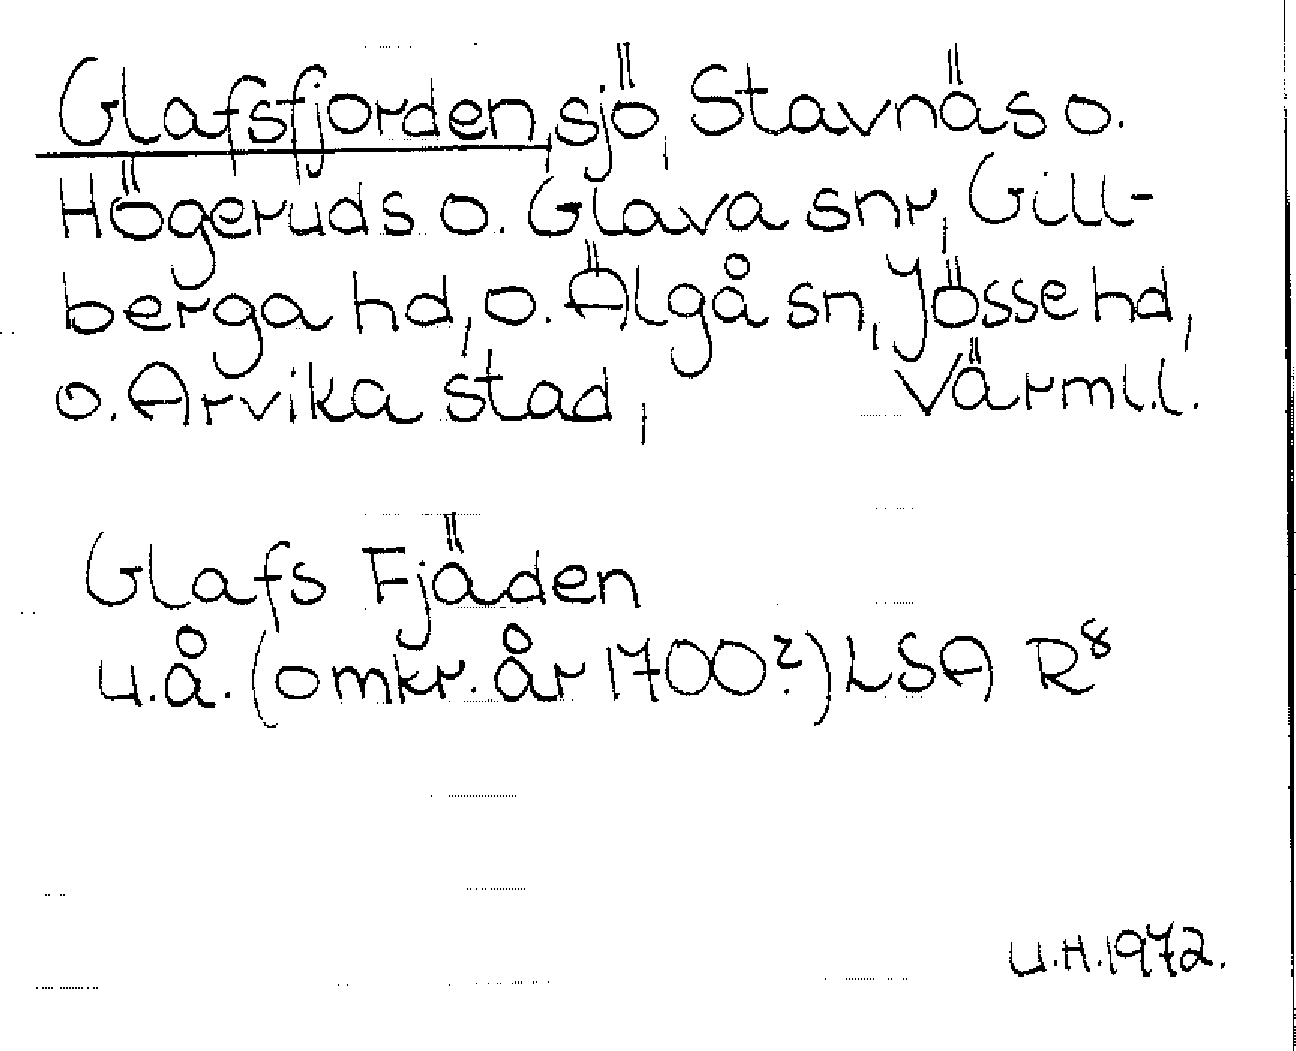 Glafsfjorden, sjö, Stavnäs o.
Högeruds o. Glava snr, Gill-
berga hd, o. Älgå sn, Jösse hd,
o. Arvika stad, Värml.l.
Glafs Fjäden
u.å. (omkr. år 1700?) LSA R⁸
U.H. 1972.